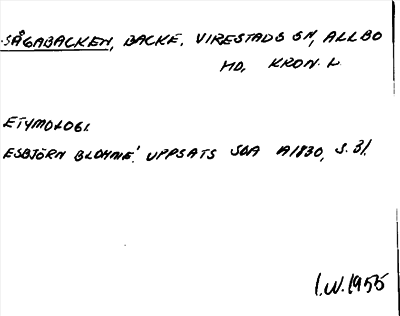 SÅGABACKEN, BACKE. VIRESTADS SN, ALLBO
HD, KRON. L.
ETYMOLOGI.
ESBJÖRN BLOHMÉ: UPPSATS SOA A1830, S. 31.
I.W.1955